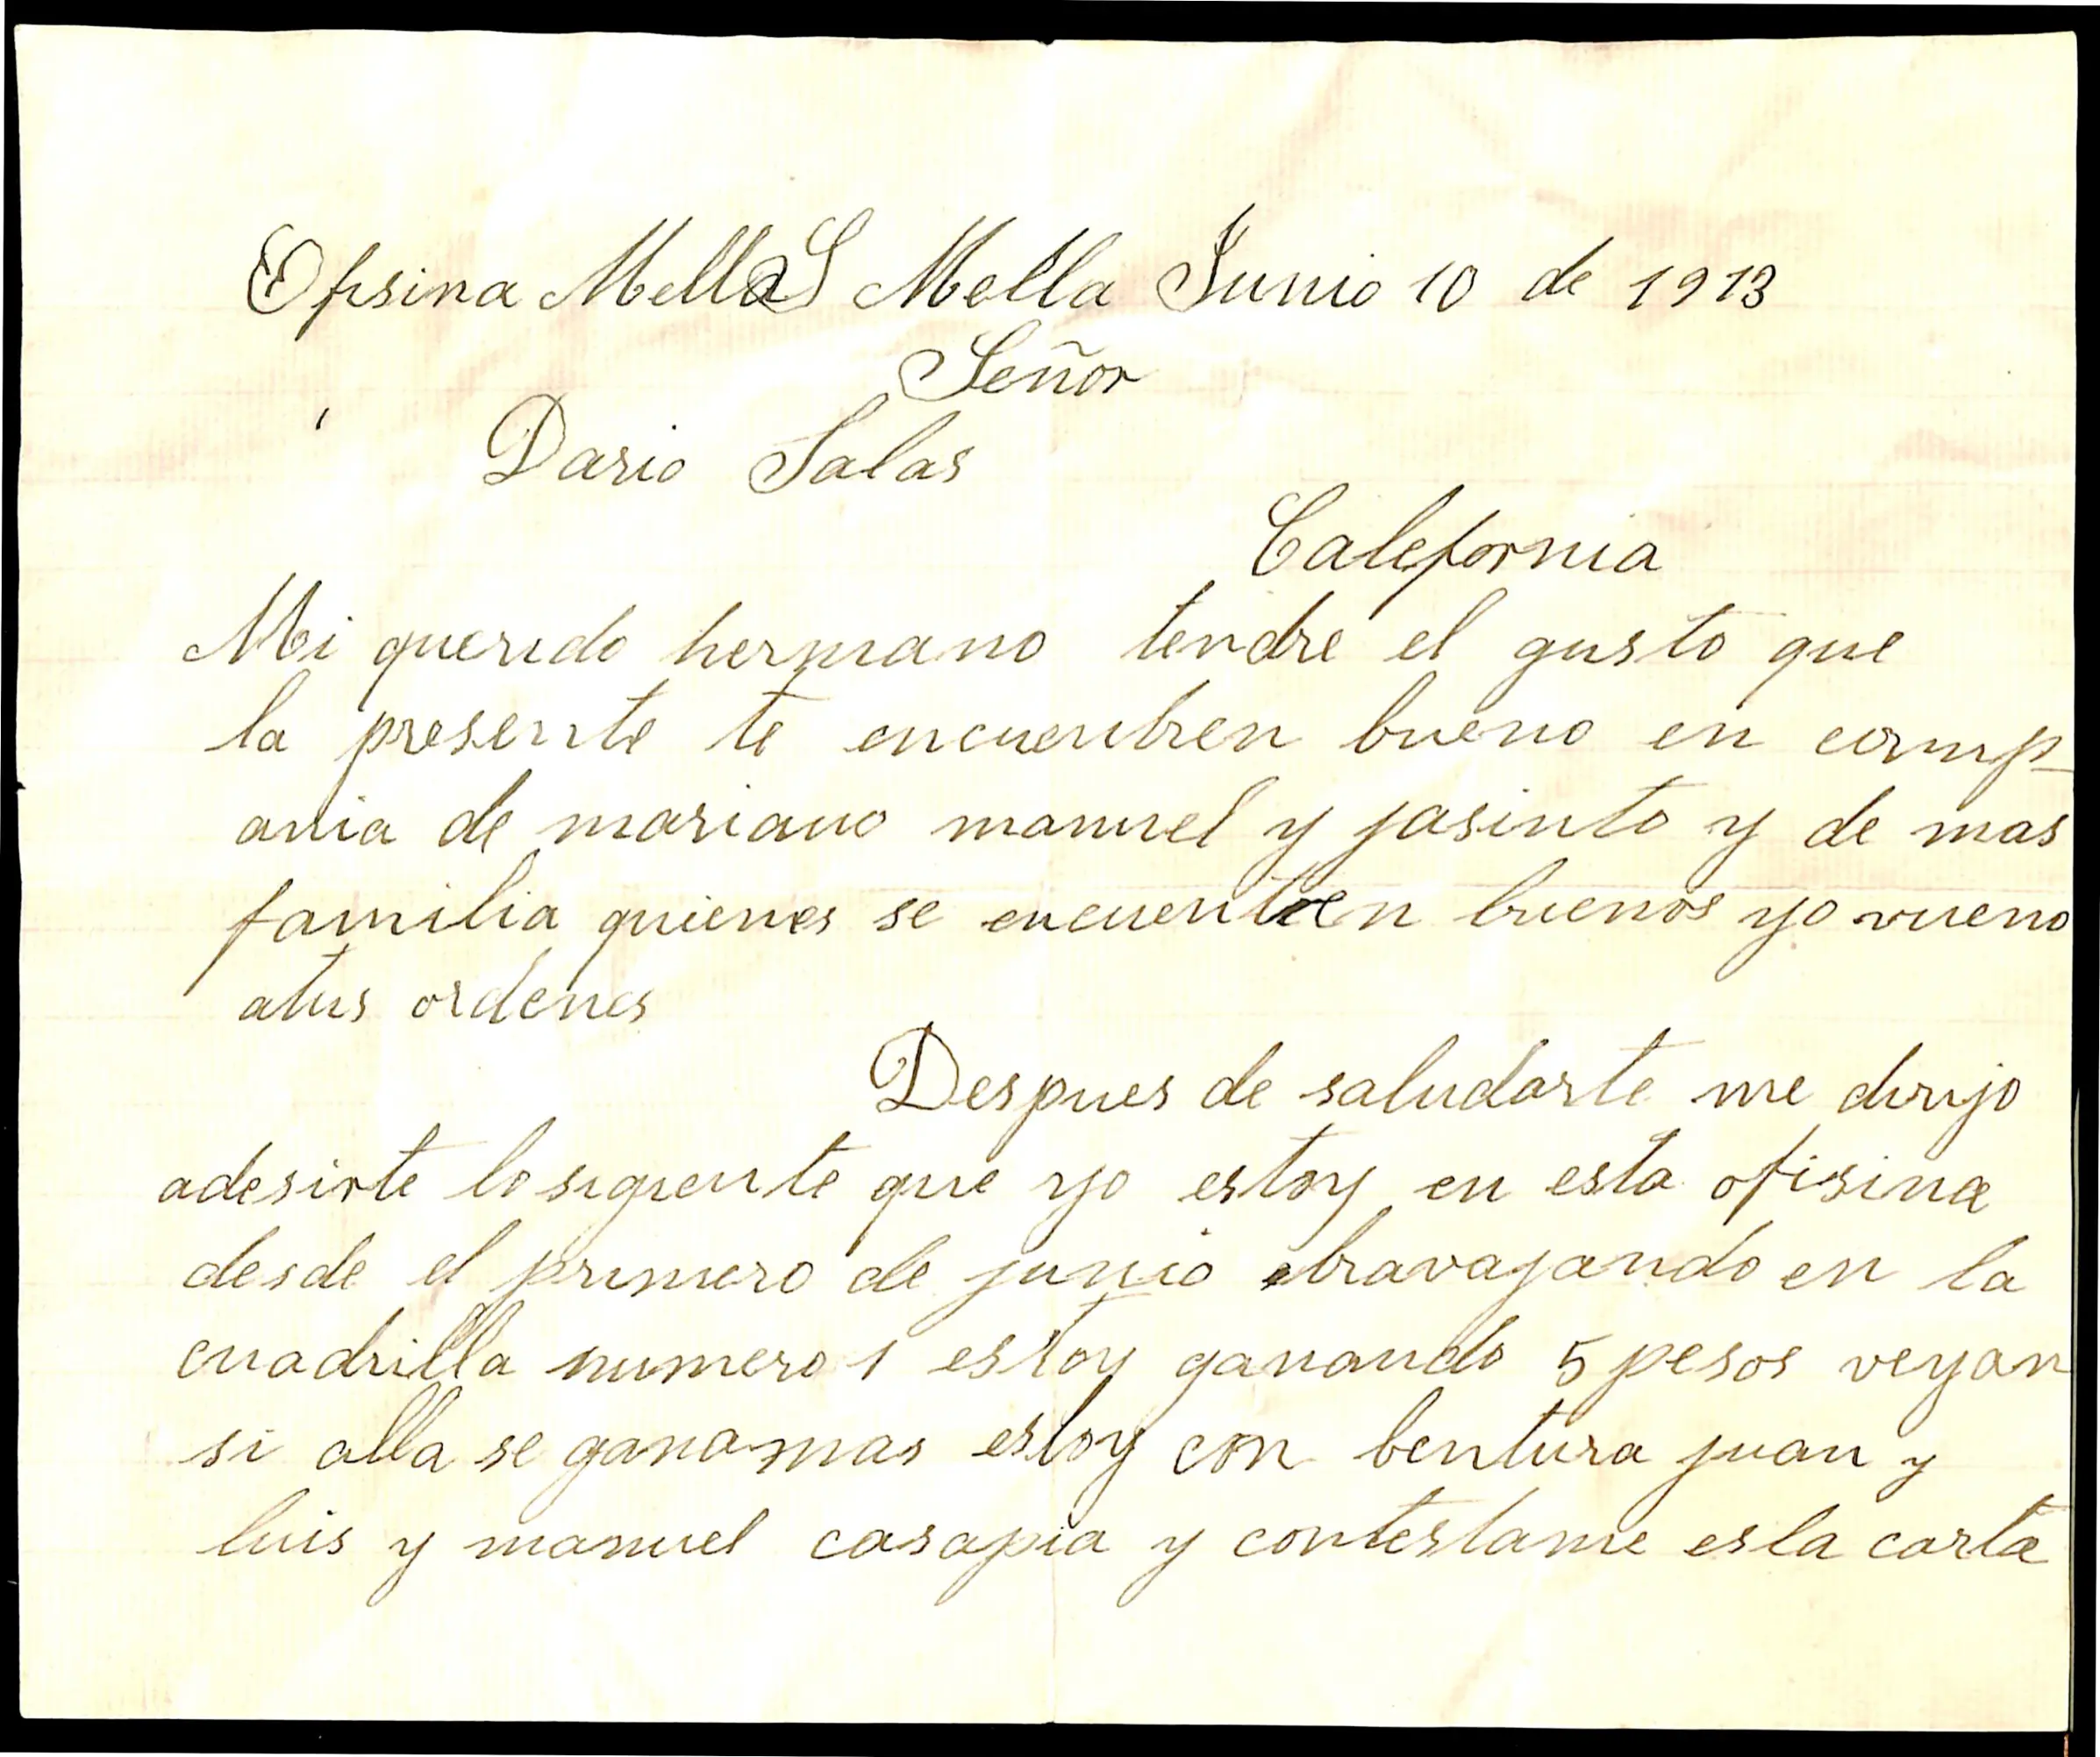 Ofisina Mella S Mella Junio 10 de 1913
Señor
Dario Salas
Calefornia
Mi querido hermano tendre el gusto que
la presente te encuentren bueno en comp-
ania de mariano manuel y jasinto y de mas
familia quienes se encuentren buenos yo vueno
atus ordenes
Despues de saludarte me dirijo
adesirte lo siguente que yo estoy en esta ofisina
desde el primero de junio travajando en la
cuadrilla numero 1 estoy ganando 5 pesos veyan
si alla se gana mas estoy con bentura juan y
luis y manuel casapia y contestame esta carta